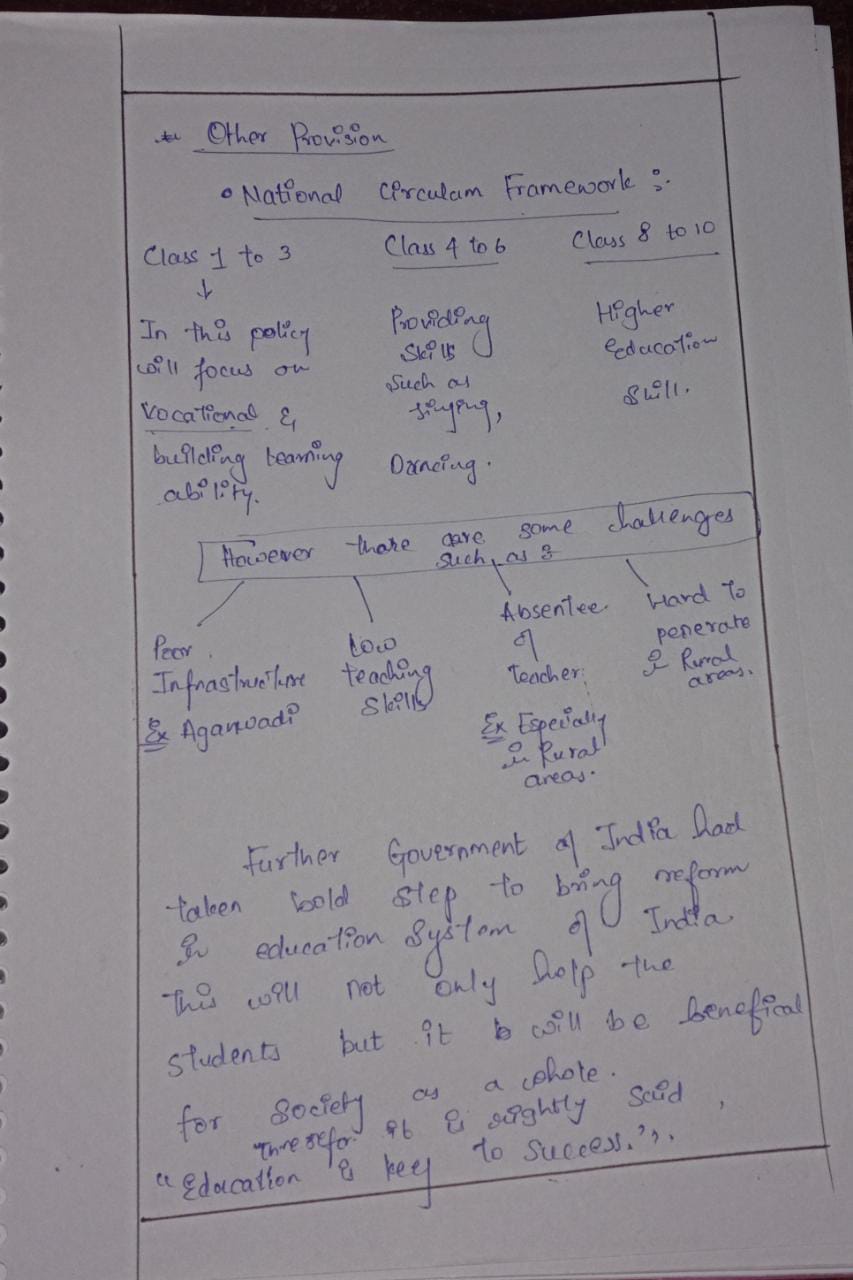 * Other Provision
• National Circulam Framework :-
Class 1 to 3
↓
In this policy
will focus on
Vocational &
building learning
ability.
Class 4 to 6
Providing
Skills
Such as
singing,
Dancing.
Class 8 to 10
Higher
Education
Skill.
However thare are some challenges
such as :
Poor
Infrastructure
Ex Aganwadi
Low
teaching
Skills
Absentee
of
Teacher
Ex Especially
in Rural
areas.
Hard To
penerate
in Rural
areas.
Further Government of India had
taken bold step to bring reform
in education System of India
This will not only help the
students but it will be benefical
for Society as a whole.
Therefor it is rightly said,
"Education is key to Success.".